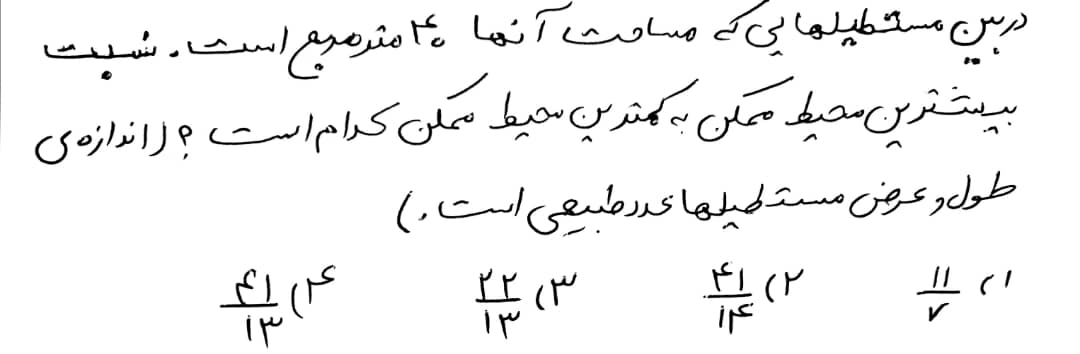 در بین مستطیلهایی که مساحت آنها ۴۰ مترمربع است. نسبت
بیشترین محیط ممکن به کمترین محیط ممکن کدام است؟ (اندازه‌ی
طول و عرض مستطیلها عدد طبیعی است.)
۱) ۱۱/۷ ۲) ۴۱/۱۴ ۳) ۲۲/۱۳ ۴) ۴۱/۱۳